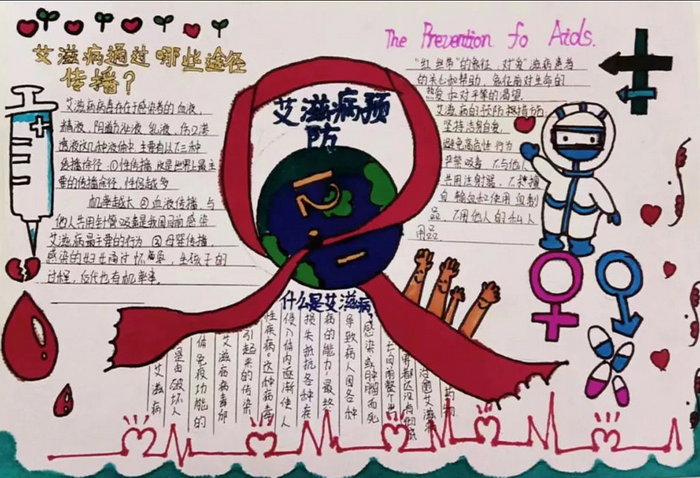 艾滋病通过哪些途径
传播？
艾滋病病毒存在于感染者的血液，
精液，阴道分泌液，乳液，伤口渗
传播途径 ①性传播 这是世界上最主
要的传播途径，性伴越多
机率越大 ②血液传播 与
他人共用针管吸毒是我国目前感染
艾滋病最主要的行为 ③母婴传播，
感染的妇女通过怀孕，生孩子的
过程，后代也有机率染。
艾滋病预
防
12
1
The Prevention fo Aids.
"红丝带"的象征，对艾滋病患者
的关心和帮助，象征着对生命的
热爱和对平等的渴望
艾滋病的预防措施方
坚持洁身自爱，
严禁吸毒，不与他人
共用注射器，不
用品
什么是艾滋病
艾滋病
是由破坏人
体免疫功能的
艾滋病病毒所
引起来的传染
性疾病。这种病毒
侵入体内逐渐使人
损失抵抗各种疾
病的能力，最终
导致病人因各种
感染或肿瘤而死